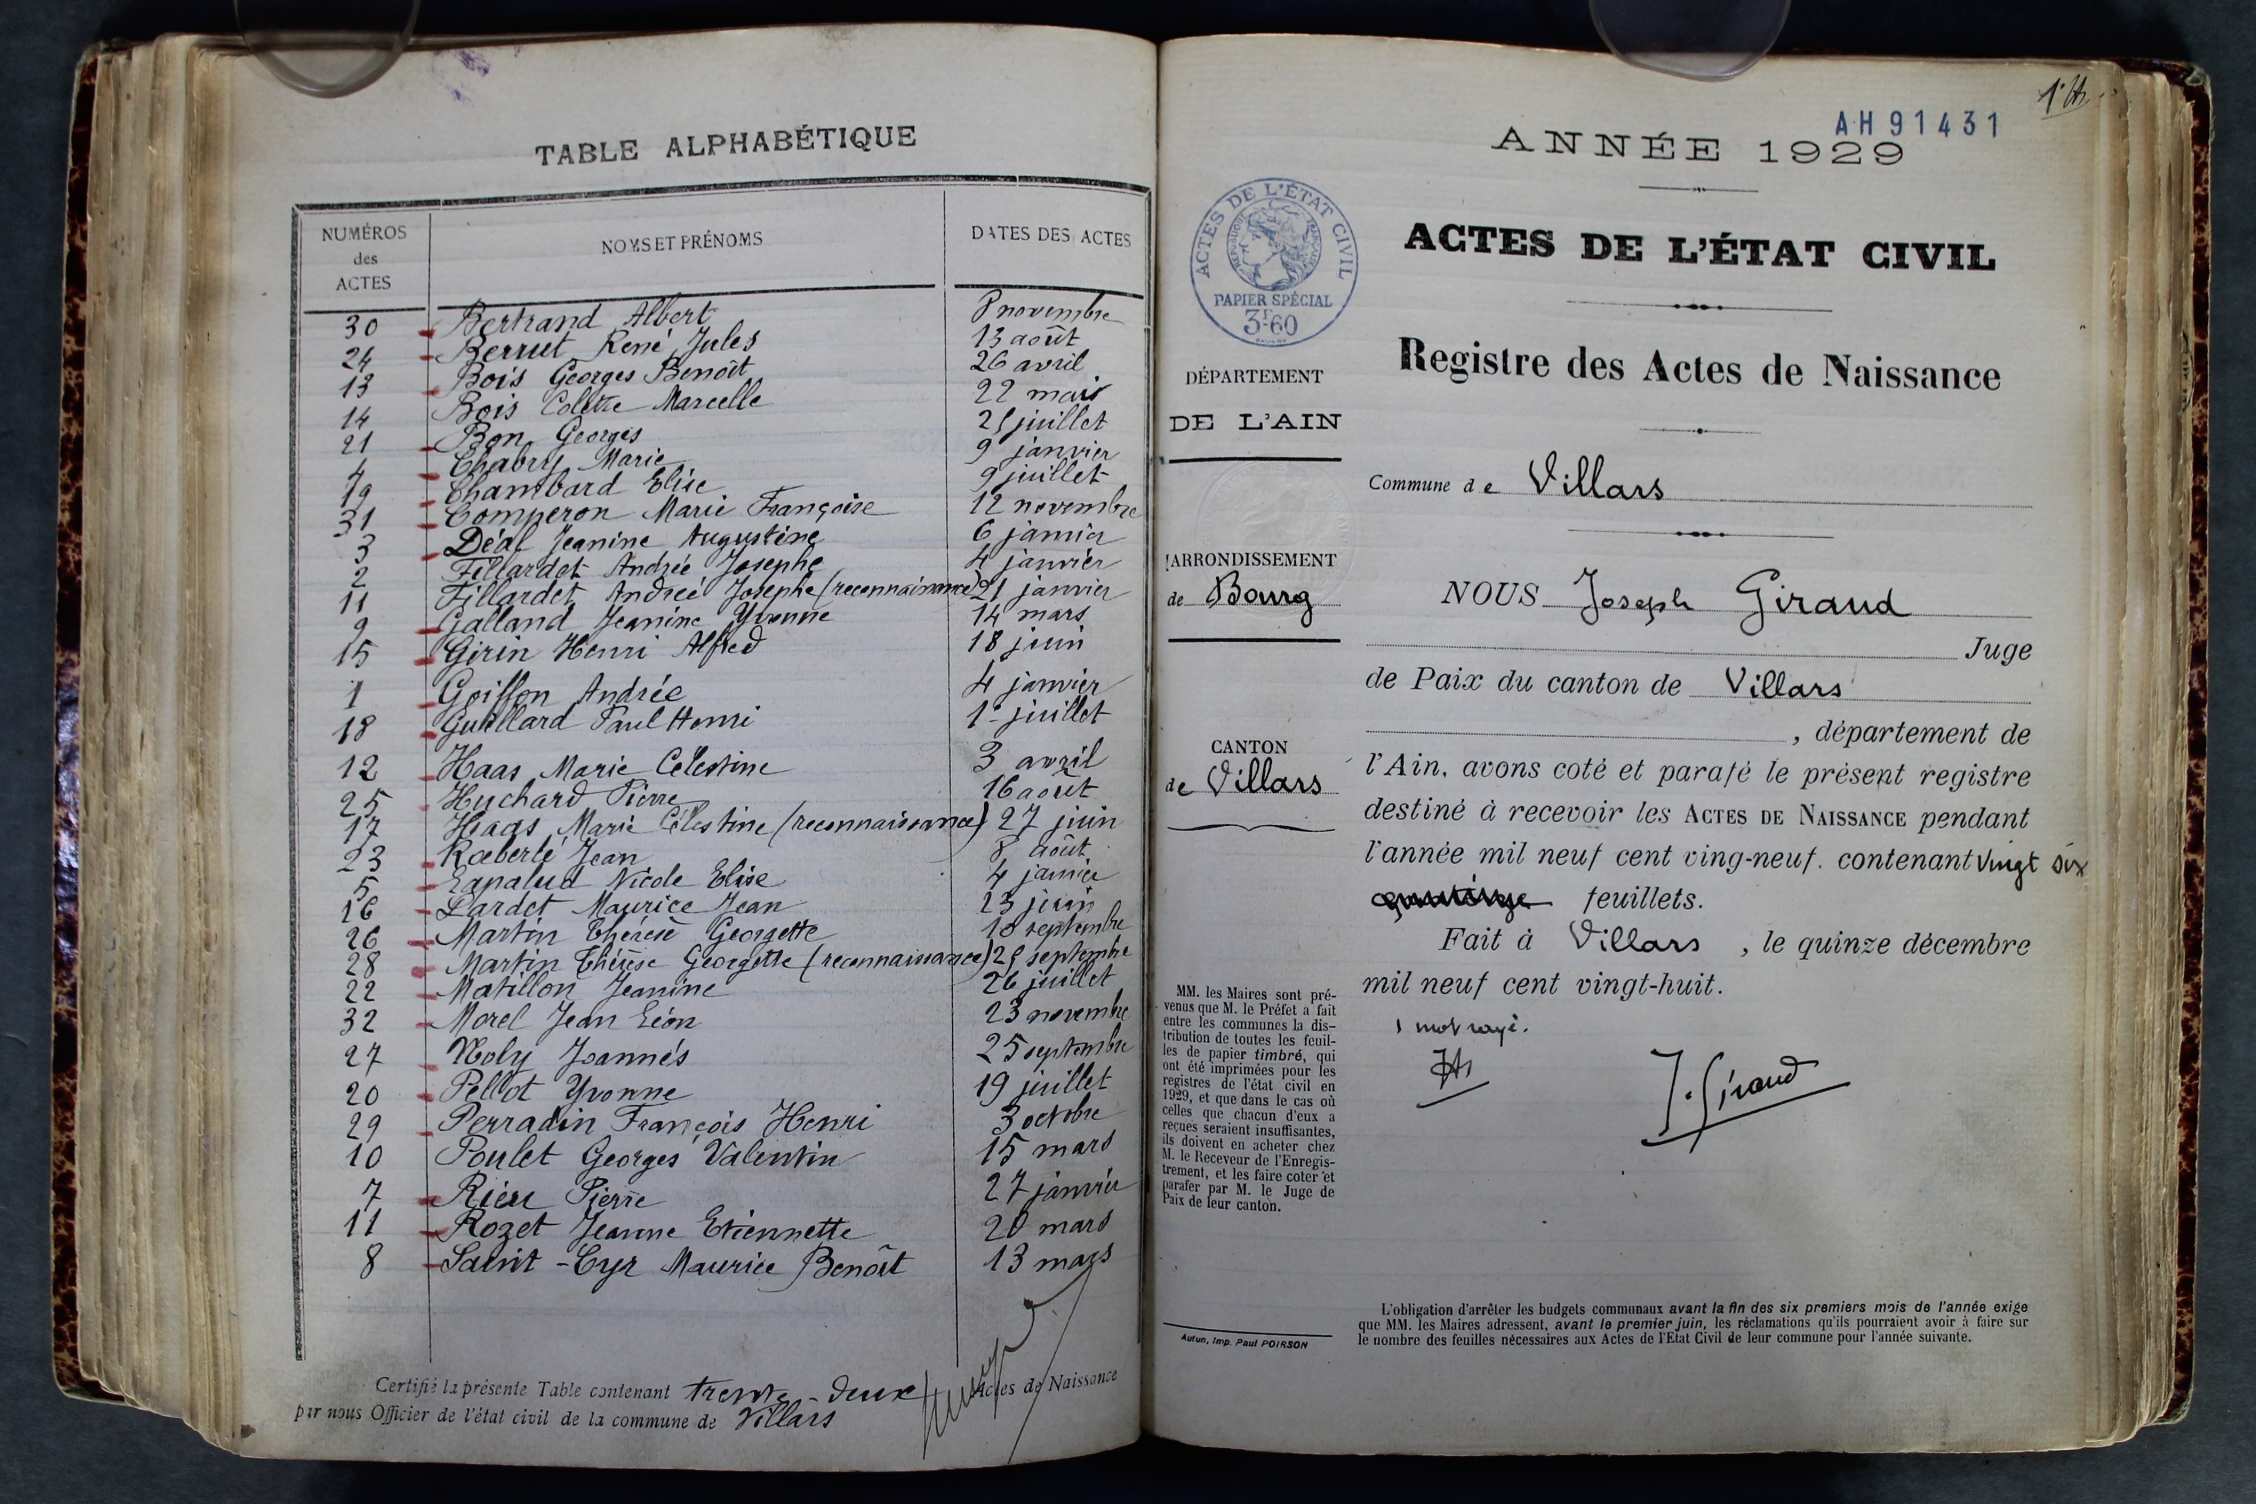 TABLE ALPHABÉTIQUE
NUMÉROS des ACTES NOMS ET PRÉNOMS DATES DES ACTES
30 Bertrand Albert 8 novembre
24 Berrut René Jules 13 août
13 Bois Georges Benoît 26 avril
14 Bois Colette Marcelle 22 mai
21 Bon Georges 25 juillet
4 Chabry Marie 9 janvier
19 Chambard Elise 9 juillet
31 Comperon Marie Françoise 12 novembre
3 Déal Jeanine Augustine 6 janvier
2 Fillardet Andrée Josephe 4 janvier
11 Fillardet Andrée Josephe (reconnaissance) 21 janvier
9 Galland Jeanine Yvonne 14 mars
15 Girin Henri Alfred 18 juin
1 Goiffon Andrée 4 janvier
18 Guillard Paul Henri 1er juillet
12 Haas Marie Célestine 3 avril
25 Huchard Pierre 16 août
17 Haas Marie Célestine (reconnaissance) 27 juin
23 Kœberlé Jean 8 août
5 Lapalud Nicole Elise 4 janvier
16 Lardet Maurice Jean 23 juin
26 Martin Thérèse Georgette 10 septembre
28 Martin Thérèse Georgette (reconnaissance) 25 septembre
22 Matillon Jeanine 26 juillet
32 Morel Jean Léon 23 novembre
27 Noly Joannés 25 septembre
20 Pellot Yvonne 19 juillet
29 Perradin François Henri 3 octobre
10 Poulet Georges Valentin 15 mars
7 Rieu Pierre 27 janvier
11 Rozet Jeanne Etiennette 20 mars
8 Saint-Cyr Maurice Benoît 13 mars
Certifié la présente Table contenant trente-deux Actes de Naissance
par nous Officier de l'état civil de la commune de Villars
AH 91431
ANNÉE 1929
ACTES DE L'ÉTAT CIVIL
RÉPUBLIQUE FRANÇAISE
PAPIER SPÉCIAL
3F60
ACTES DE L'ÉTAT CIVIL
Registre des Actes de Naissance
DÉPARTEMENT
DE L'AIN
Commune de Villars
ARRONDISSEMENT
de Bourg
NOUS Joseph Giraud
Juge
de Paix du canton de Villars
, département de
CANTON
de Villars
l'Ain, avons coté et parafé le présent registre
destiné à recevoir les ACTES DE NAISSANCE pendant
l'année mil neuf cent ving-neuf. contenant vingt six
feuillets.
Fait à Villars , le quinze décembre
mil neuf cent vingt-huit.
1 mot rayé.
J. Giraud
MM. les Maires sont pré-
venus que M. le Préfet a fait
entre les communes la dis-
tribution de toutes les feuil-
les de papier timbré, qui
ont été imprimées pour les
registres de l'état civil en
1929, et que dans le cas où
celles que chacun d'eux a
reçues seraient insuffisantes,
ils doivent en acheter chez
M. le Receveur de l'Enregis-
trement, et les faire coter et
parafer par M. le Juge de
Paix de leur canton.
Autun, Imp. Paul POIRSON
L'obligation d'arrêter les budgets communaux avant la fin des six premiers mois de l'année exige
que MM. les Maires adressent, avant le premier juin, les réclamations qu'ils pourraient avoir à faire sur
le nombre des feuilles nécessaires aux Actes de l'Etat Civil de leur commune pour l'année suivante.